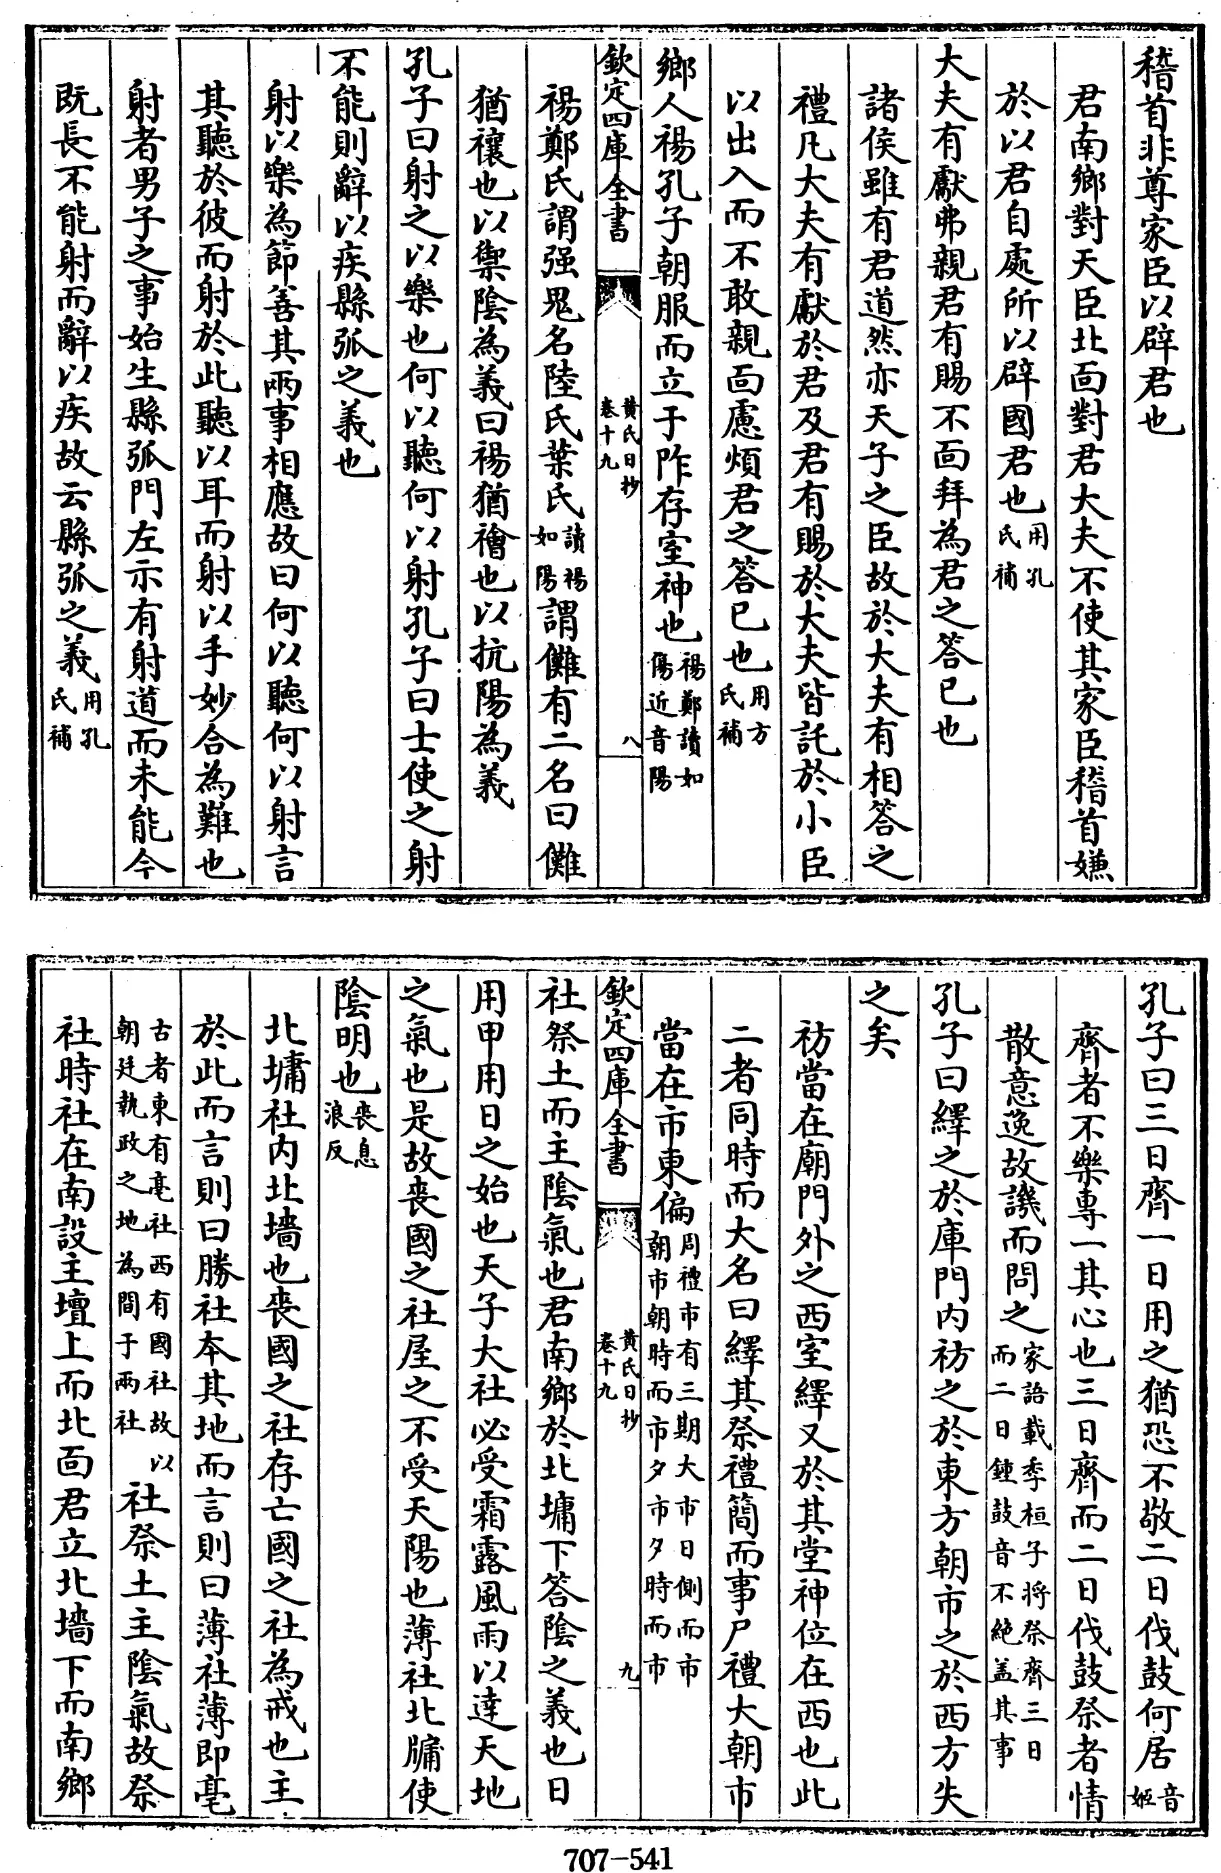 稽首非尊家臣以辟君也
君南鄉對天臣北面對君大夫不使其家臣稽首嫌
於以君自處所以辟國君也用孔氏補
大夫有獻弗親君有賜不面拜為君之答已也
諸侯雖有君道然亦天子之臣故於大夫有相答之
禮凡大夫有獻於君及君有賜於大夫皆託於小臣
以出入而不敢親面慮煩君之答已也用方氏補
鄉人禓孔子朝服而立于阼存室神也禓鄭讀如傷近音陽
欽定四庫全書
黄氏日抄卷十九
八
禓鄭氏謂强鬼名陸氏葉氏讀禓如陽謂儺有二名曰儺
猶禳也以禦陰為義曰禓猶禬也以抗陽為義
孔子曰射之以樂也何以聽何以射孔子曰士使之射
不能則辭以疾縣弧之義也
射以樂為節善其兩事相應故曰何以聽何以射言
其聽於彼而射於此聽以耳而射以手妙合為難也
射者男子之事始生縣弧門左示有射道而未能今
既長不能射而辭以疾故云縣弧之義用孔氏補
孔子曰三日齊一日用之猶恐不敬二日伐鼓何居音姬
齊者不樂專一其心也三日齊而二日伐鼓祭者情
散意逸故譏而問之家語載季桓子將祭齊三日而二日鍾鼓音不絶盖其事
孔子曰繹之於庫門内祊之於東方朝市之於西方失
之矣
祊當在廟門外之西室繹又於其堂神位在西也此
二者同時而大名曰繹其祭禮簡而事尸禮大朝市
當在市東偏周禮市有三期大市日側而市朝市朝時而市夕市夕時而市
欽定四庫全書
黄氏日抄卷十九
九
社祭土而主陰氣也君南鄉於北墉下答陰之義也日
用甲用日之始也天子大社必受霜露風雨以達天地
之氣也是故喪國之社屋之不受天陽也薄社北牖使
陰明也喪息浪反
北墉社内北墻也喪國之社存亡國之社為戒也主
於此而言則曰勝社本其地而言則曰薄社薄即亳
古者東有亳社西有國社故以朝廷執政之地為間于兩社社祭土主陰氣故祭
社時社在南設主壇上而北面君立北墻下而南鄉
707-541